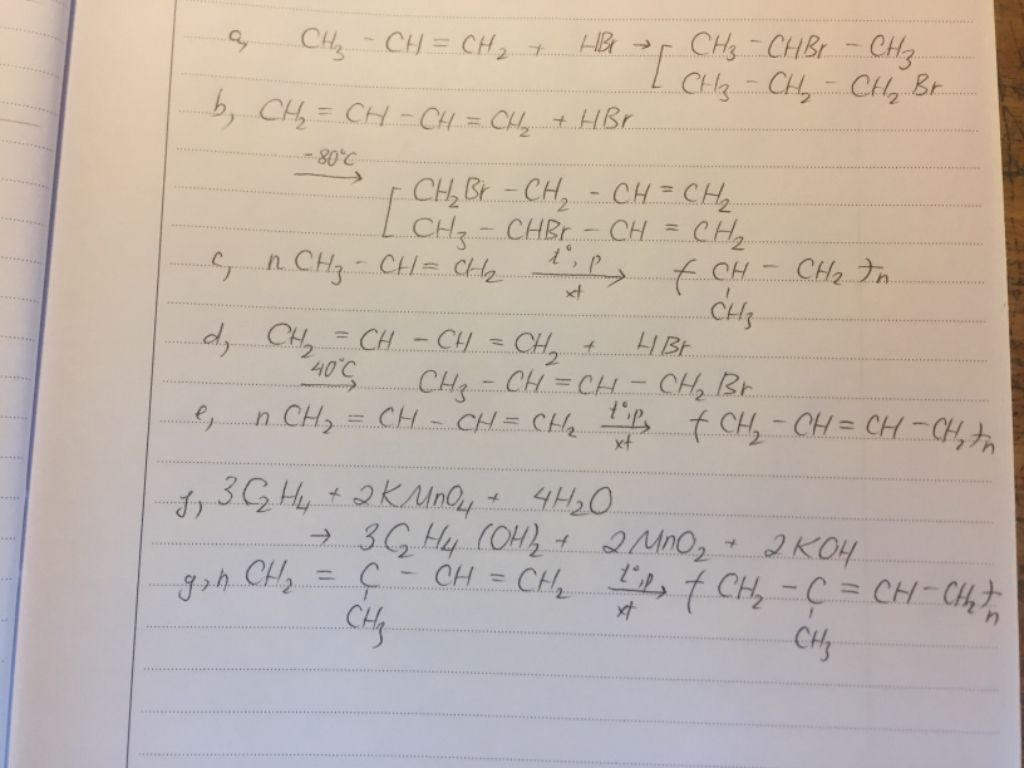 a, CH₃ - CH = CH₂ + HBr → [ CH₃ - CHBr - CH₃
CH₃ - CH₂ - CH₂Br
b, CH₂ = CH - CH = CH₂ + HBr
-80°C
→ [ CH₂Br - CH₂ - CH = CH₂
CH₃ - CHBr - CH = CH₂
c, nCH₃ - CH = CH₂ t°, p → xt ( CH - CH₂ )n
CH₃
d, CH₂ = CH - CH = CH₂ + HBr
40°C → CH₃ - CH = CH - CH₂Br
e, nCH₂ = CH - CH = CH₂ t°, p → xt ( CH₂ - CH = CH - CH₂ )n
f, 3C₂H₄ + 2KMnO₄ + 4H₂O
→ 3C₂H₄(OH)₂ + 2MnO₂ + 2KOH
g, nCH₂ = C - CH = CH₂ t°, p → xt ( CH₂ - C = CH - CH₂ )n
CH₃ CH₃